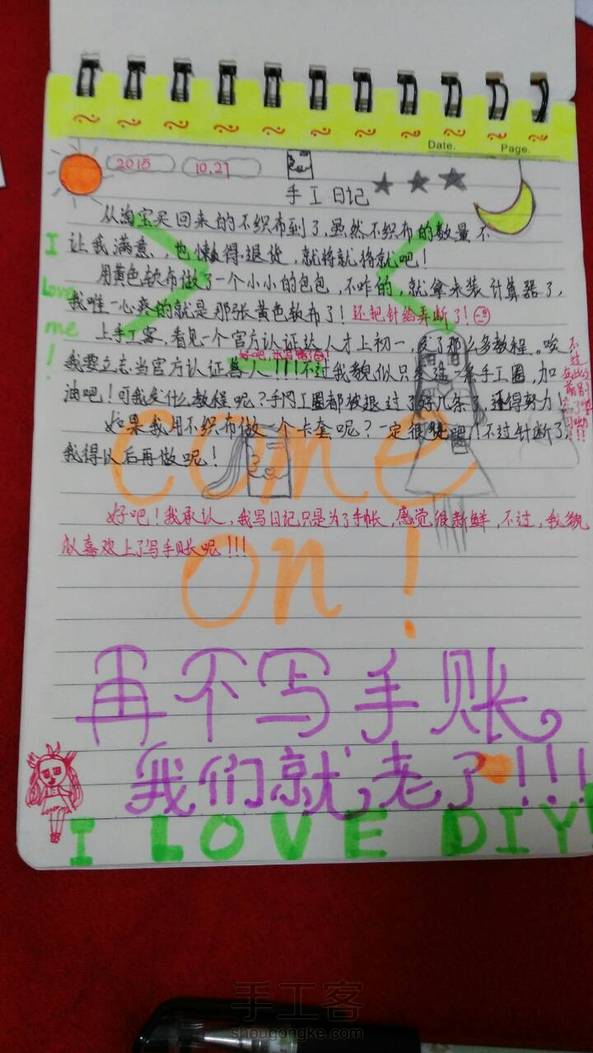 Date.
Page.
2015
10.27
手工日记
从淘宝买回来的不织布到了,虽然不织布的数量不
I 让我满意,也懒得退货,就将就将就吧!
用黄色软布做了一个小小的包包,不咋的,就拿来装计算器了,
Love
我唯一心爽的就是那张黄色软布了!还把针给弄断了!
me
上手工客,看见一个官方认证达人才上初一,发了那么多教程。唉
!
我要立志当官方认证达人!!!不过我貌似只
手工圈,加
油吧!可我发什么教程呢?手
工圈都被退过了好几条了,
得努力!
如果我用不织布做一个卡套呢?一定很
不过针断了,
我得以后再做呢!
come
on!
好吧!我承认,我写日记只是为了手帐,感觉很新鲜,不过,我貌
似喜欢上了写手账呢!!!
再不写手账,
我们就老了!!!
I LOVE DIY!
手工客
shougongke.com